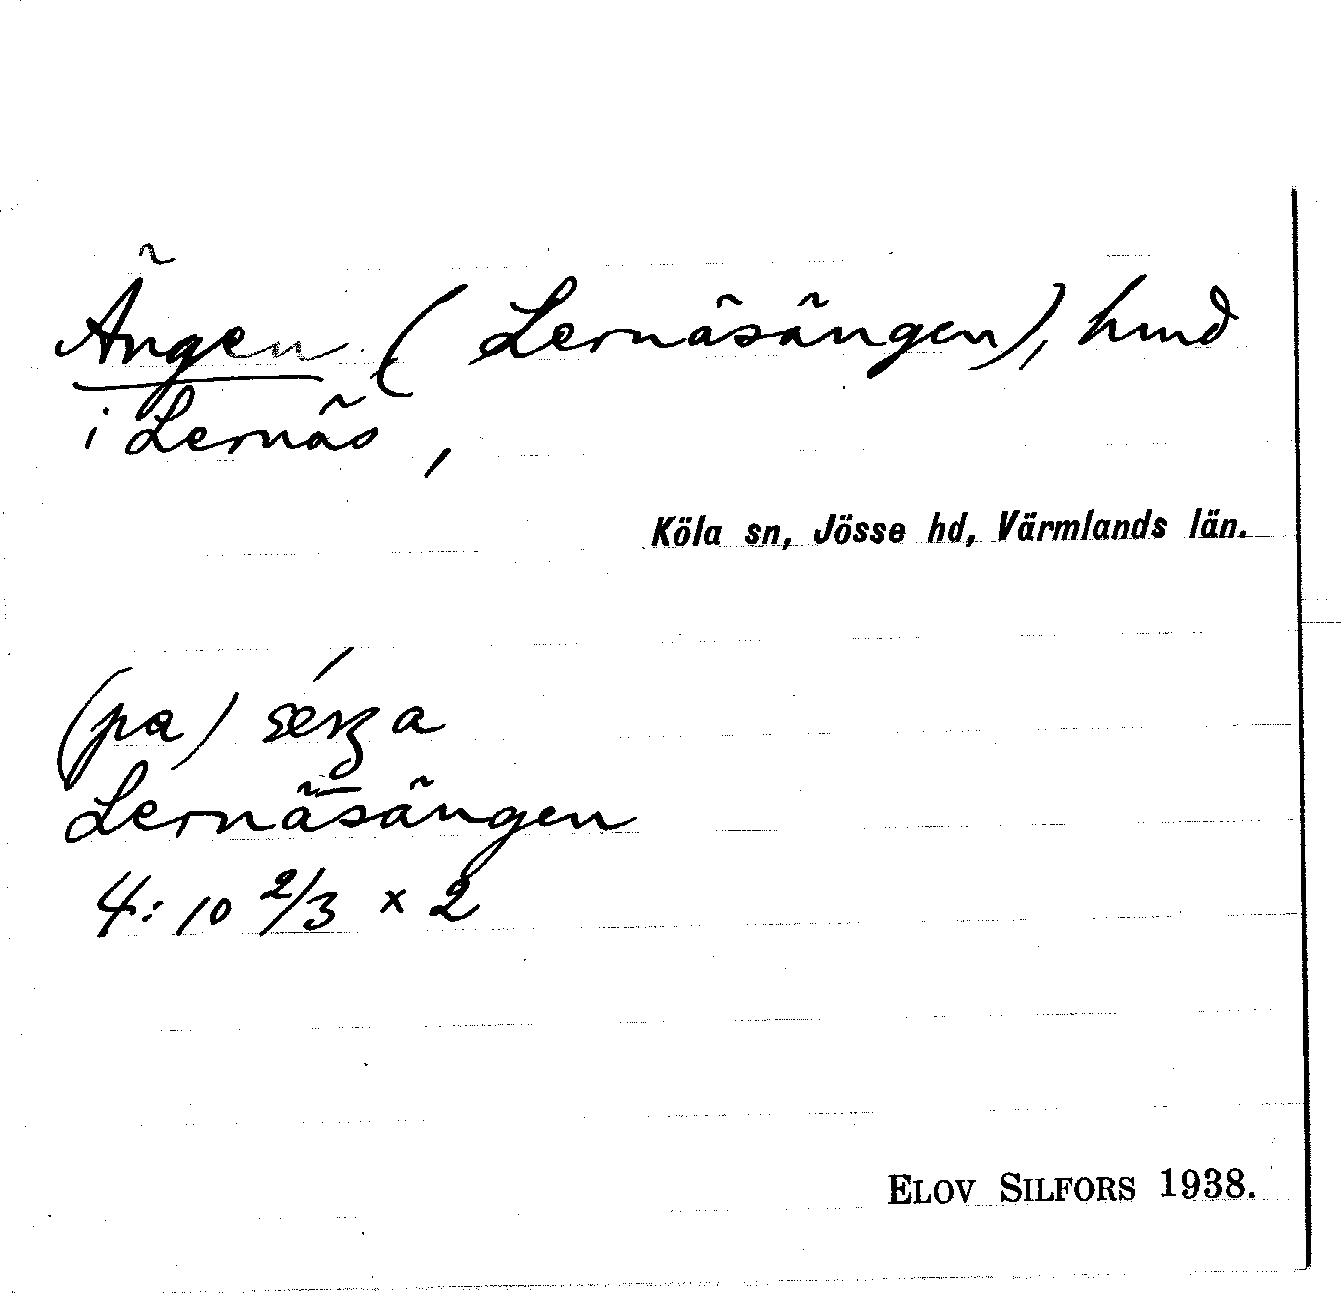 Ängen (Lernäsängen), hmd
i Lernäs,
Köla sn, Jösse hd, Värmlands län.
(pa)
Lernäsängen
4:10 2/3 x 2
ELOV SILFORS 1938.